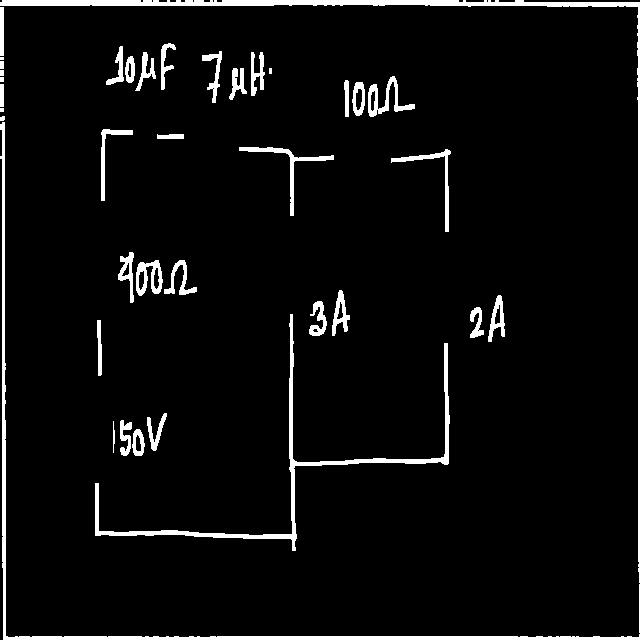 10μF 7μH 100Ω
400Ω
3A 2A
150V